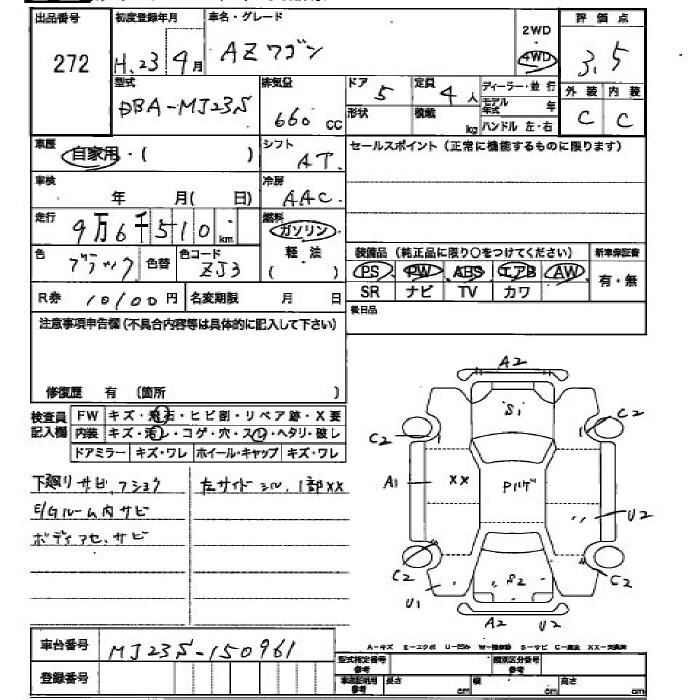 出品番号 初度登録年月 車名・グレード 評価点
272 H.23 9月 AZワゴン 2WD 4WD 3.5
型式 排気量 ドア 定員 ディーラー・並行 外装 内装
DBA-MJ23S 660 cc 5 4人 モデル年式 年 C C
形状 積載 kg ハンドル 左・右
車歴 自家用・( ) シフト AT. セールスポイント(正常に機能するものに限ります)
車検 年 月( 日) 冷房 AAC.
走行 9万6千510 km 燃料 ガソリン
軽・法 ( )
色 ブラック 色替 色コード ZJ3 装備品(純正品に限り○をつけてください) 新車保証書
PS PW ABS エアB AW 有・無
R券 10100円 名変期限 月 日 SR ナビ TV カワ
注意事項申告欄(不具合内容等は具体的に記入して下さい) 後日品
修復歴 有 (箇所 )
検査員記入欄 FW キズ・飛石・ヒビ割・リペア跡・X要
内装 キズ・汚レ・コゲ・穴・スレ・ヘタリ・破レ
ドアミラー キズ・ワレ ホイール・キャップ キズ・ワレ
下廻りサビ、フショク 左サイドシル、1部XX
E/Gルーム内サビ
ボディアセ、サビ
A2
S1
C2 C2
1
A1 XX Pハゲ U2
C2 C2
U1 S2
A2 U2
A-キズ E-エクボ U-凹み W-補修跡 S-サビ C-腐食 XX-交換済
車台番号 MJ23S-150961
登録番号
型式指定番号 参考 類別区分番号 参考
車庫証明用 参考 長さ cm 幅 cm 高さ cm